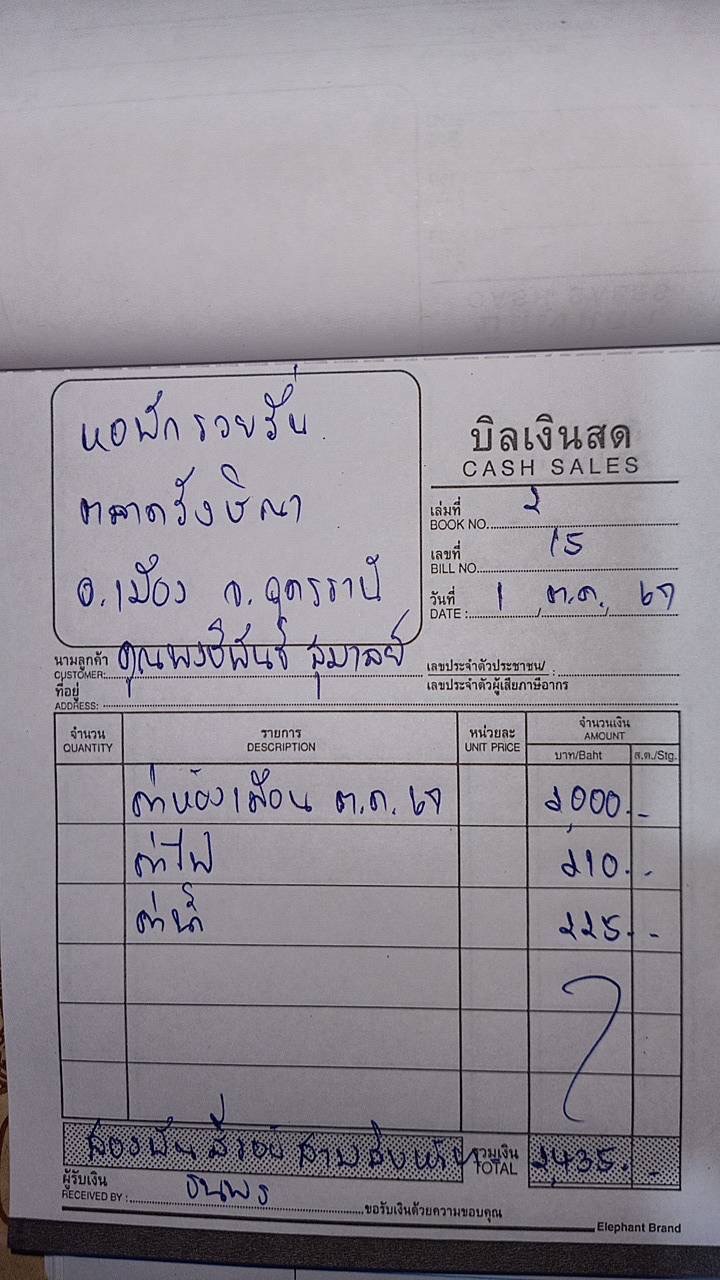 หอพักรวยริน
ตลาดรังษิณา
อ.เมือง จ.อุดรธานี
บิลเงินสด
CASH SALES
เล่มที่
BOOK NO. 2
เลขที่
BILL NO. 15
วันที่
DATE : 1 / ต.ค. / 67
นามลูกค้า
CUSTOMER: คุณพงษ์พันธ์ สุมาลย์
เลขประจำตัวประชาชน/
เลขประจำตัวผู้เสียภาษีอากร :
ที่อยู่
ADDRESS:
จำนวน รายการ หน่วยละ จำนวนเงิน
QUANTITY DESCRIPTION UNIT PRICE AMOUNT
บาท/Baht ส.ต./Stg.
ค่าห้องเดือน ต.ค. 67 2,000.-
ค่าไฟ 210.-
ค่าน้ำ 225.-
สองพันสี่ร้อยสามสิบห้า รวมเงิน 2,435.-
TOTAL
ผู้รับเงิน
RECEIVED BY : ธนพร
ขอรับเงินด้วยความขอบคุณ
Elephant Brand